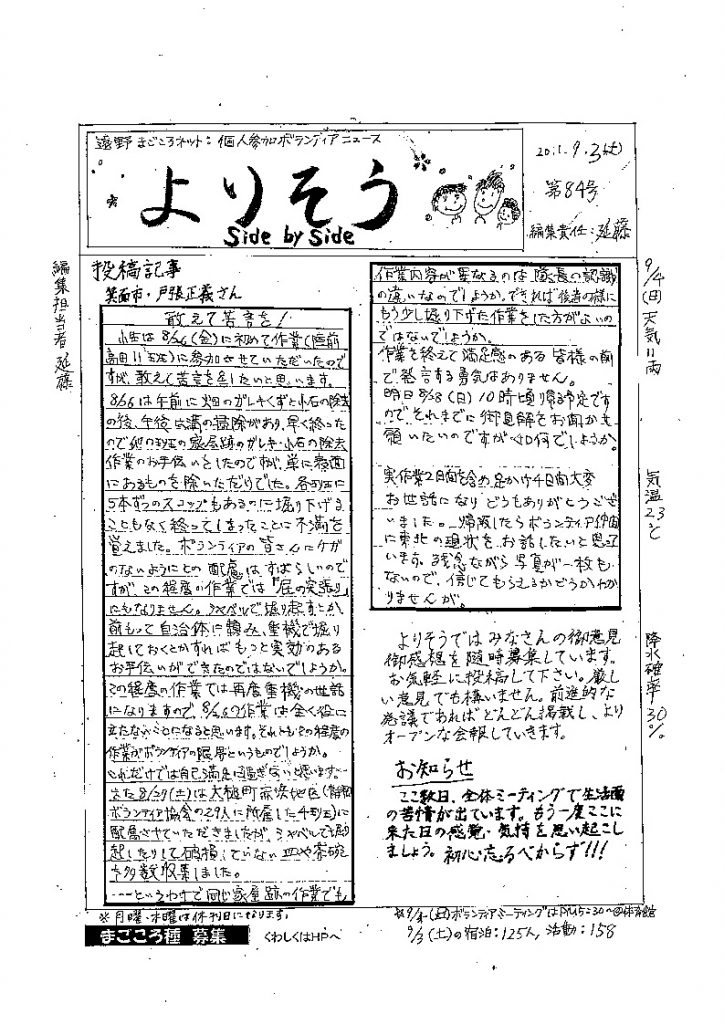 遠野まごころネット：個人参加ボランティアニュース
よりそう
Side by Side
2011.9.3(土)
第84号
編集責任：延藤
編集担当者 延藤
投稿記事
箕面市・戸張正義さん
敢えて苦言を！
小生は8/26(金)に初めて作業(陸前
高田11玉石)に参加させていただいたので
すが、敢えて苦言を呈したいと思います。
8/26は午前に畑のガレキくずと小石の除去
の後、午後は溝の掃除があり、早く終った
ので他の班の家屋跡のガレキ・小石の除去
作業のお手伝いをしたのですが、単に表面
にあるものを除いただけでした。各班に
5本ずつのスコップもあるのに掘り下げる
こともなく終ってしまったことに不満を
覚えました。ボランティアの皆さんにケガ
のないようにとの配慮はすばらしいので
すが、この程度の作業では「屁の突張り」
にもなりません。シャベルで掘り起すとか
前もって自治体に頼み、重機で掘り
起しておくとかすればもっと実効のある
お手伝いができたのではないでしょうか。
この程度の作業では再度重機の世話
になりますので、8/26の作業は全く役に
立たないことになると思います。それともこの程度の
作業がボランティアの限界というものでしょうか。
これだけでは自己満足に過ぎないと思います。
また8/27(土)は大槌町赤浜地区(静岡
ボランティア協会の29人に所属した4号車)に
配属させていただきましたが、シャベルでも掘り
起したりして破損していない皿や茶碗
も多数収集しました。
……というわけで同じ家屋跡の作業でも
作業内容が異なるのは隊長の認識
の違いなのでしょうか。できれば後者の様に
もう少し掘り下げた作業をした方がよいの
ではないでしょうか。
作業を終えて満足感のある皆様の前
で発言する勇気はありません。
明日8/28(日)10時頃り帰る予定です
のでそれまでに御見解をお聞かせ
願いたいのですが如何でしょうか。
実作業2日間を含め足かけ4日間大変
お世話になりどうもありがとうござ
いました。帰阪したらボランティア仲間
に東北の現状をお話したいと思って
います。残念ながら写真が一枚も
ないので、信じてもらえるかどうかわか
りませんが。
よりそうではみなさんの御意見
御感想を随時募集しています。
お気軽に投稿して下さい。厳し
い意見でも構いません。前進的な
議であればどんどん掲載し、より
オープンな会報していきます。
お知らせ
ここ数日、全体ミーティングで生活面
の苦情が出ています。もう一度ここに
来た日の感覚・気持を思い起こし
ましょう。初心忘るべからず!!!
9/4(日)天気 雨
気温23℃
降水確率30%
※月曜・木曜は休刊日になります。
まごころ種 募集 くわしくはHPへ
※9/4(日)ボランティアミーティングはPM5:30〜@体育館
9/3(土)の宿泊：125人，活動：158